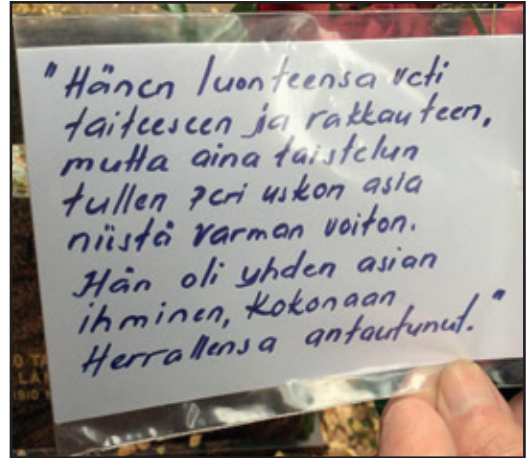 "Hänen luonteensa veti
taiteeseen ja rakkauteen,
mutta aina taistelun
tullen peri uskon asia
niistä varman voiton.
Hän oli yhden asian
ihminen, kokonaan
Herrallensa antautunut."